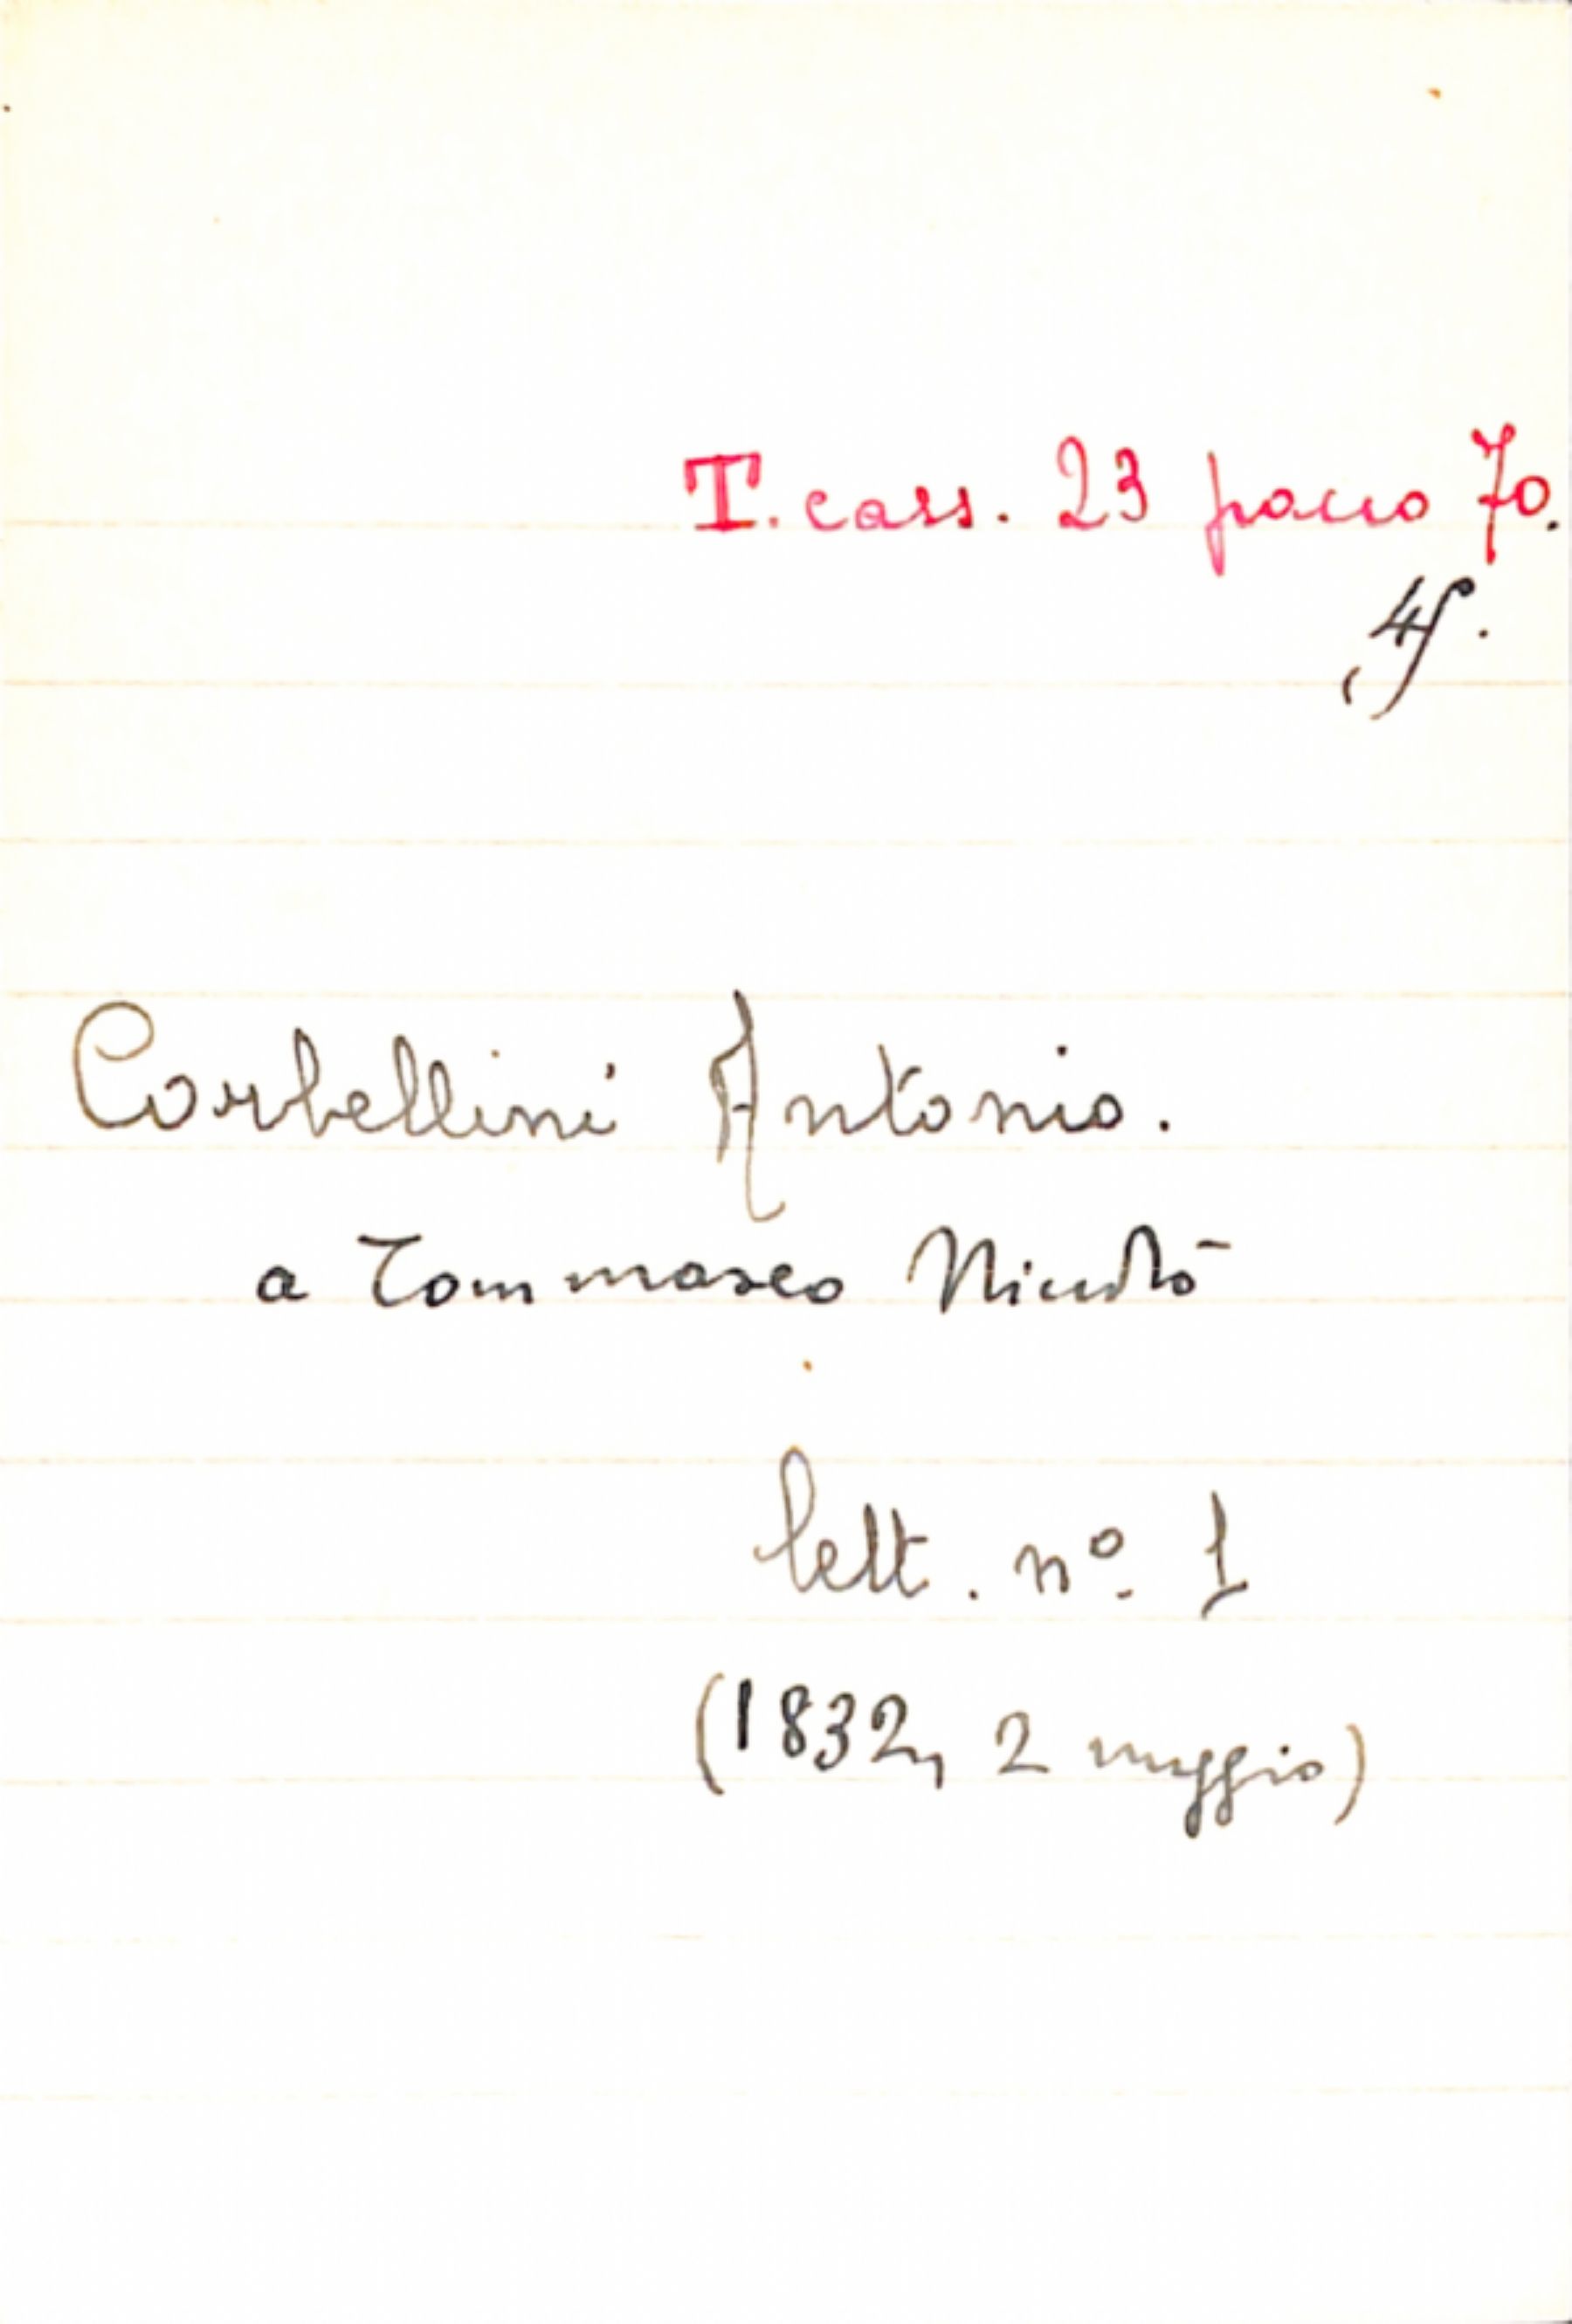 T. cass. 23 pacco 70.
Corbellini Antonio.
a Tommaseo Nicolò
lett. nº. 1
(1832, 2 maggio)